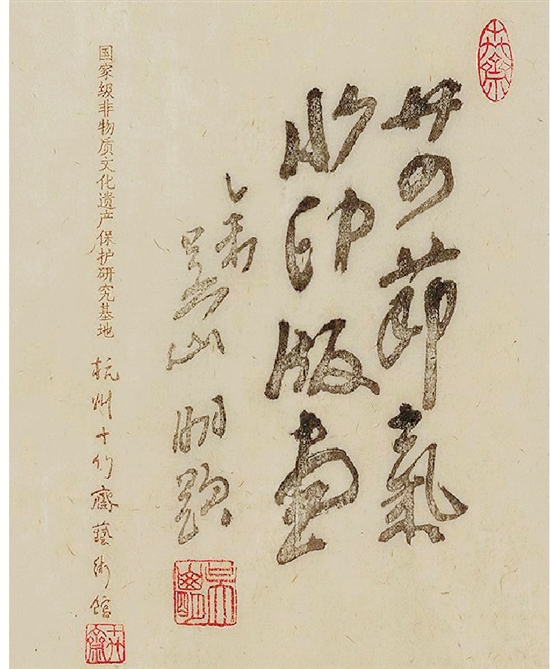 廿四節氣
水印版畫
乙未
吴山明题
国家级非物质文化遗产保护研究基地 杭州十竹齋藝術館